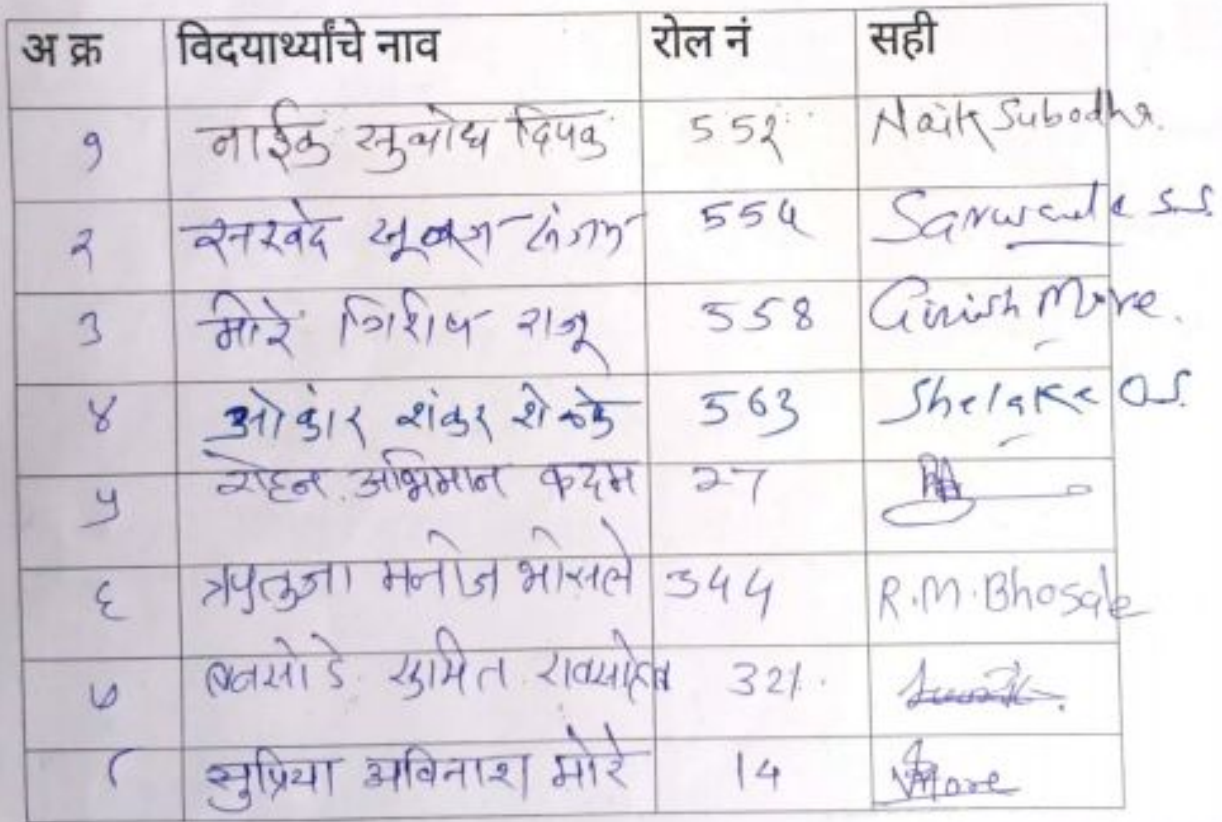 अ क्र विदयार्थ्यांचे नाव रोल नं सही
१ नाईक सुबोध दिपक 552 Naik Subodh
२ सरवदे 554 Sarwade S.S.
३ मोरे गिरिष राजू 558 Girish More.
४ ओंकार शंकर शेळके 563 Shelake O.S.
५ रोहन अभिमान कदम 27
६ ऋतुजा मनोज भोसले 344 R.M.Bhosale
७ बनसोडे सुमित रावसाहेब 321
८ सुप्रिया अविनाश मोरे 14 More